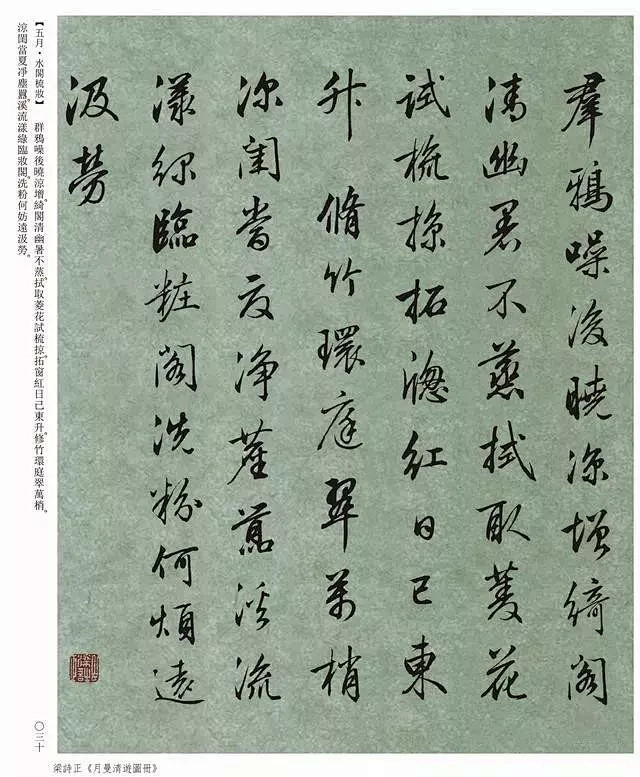 羣鴉噪後曉涼增綺閣
清幽暑不蒸拭取菱花
試梳掠拓牕紅日已東
升 脩竹環庭翠萬梢
涼閨當夏净塵囂溪流
漾綠臨粧閣洗粉何煩遠
汲勞
【五月·水閣梳妝】 群鴉噪後曉涼增。綺閣清幽暑不蒸。拭取菱花試梳掠。拓窗紅日已東升。修竹環庭翠萬梢。
涼閨當夏凈塵囂。溪流漾綠臨妝閣。洗粉何妨遠汲勞。
〇三十
梁詩正《月曼清遊圖冊》